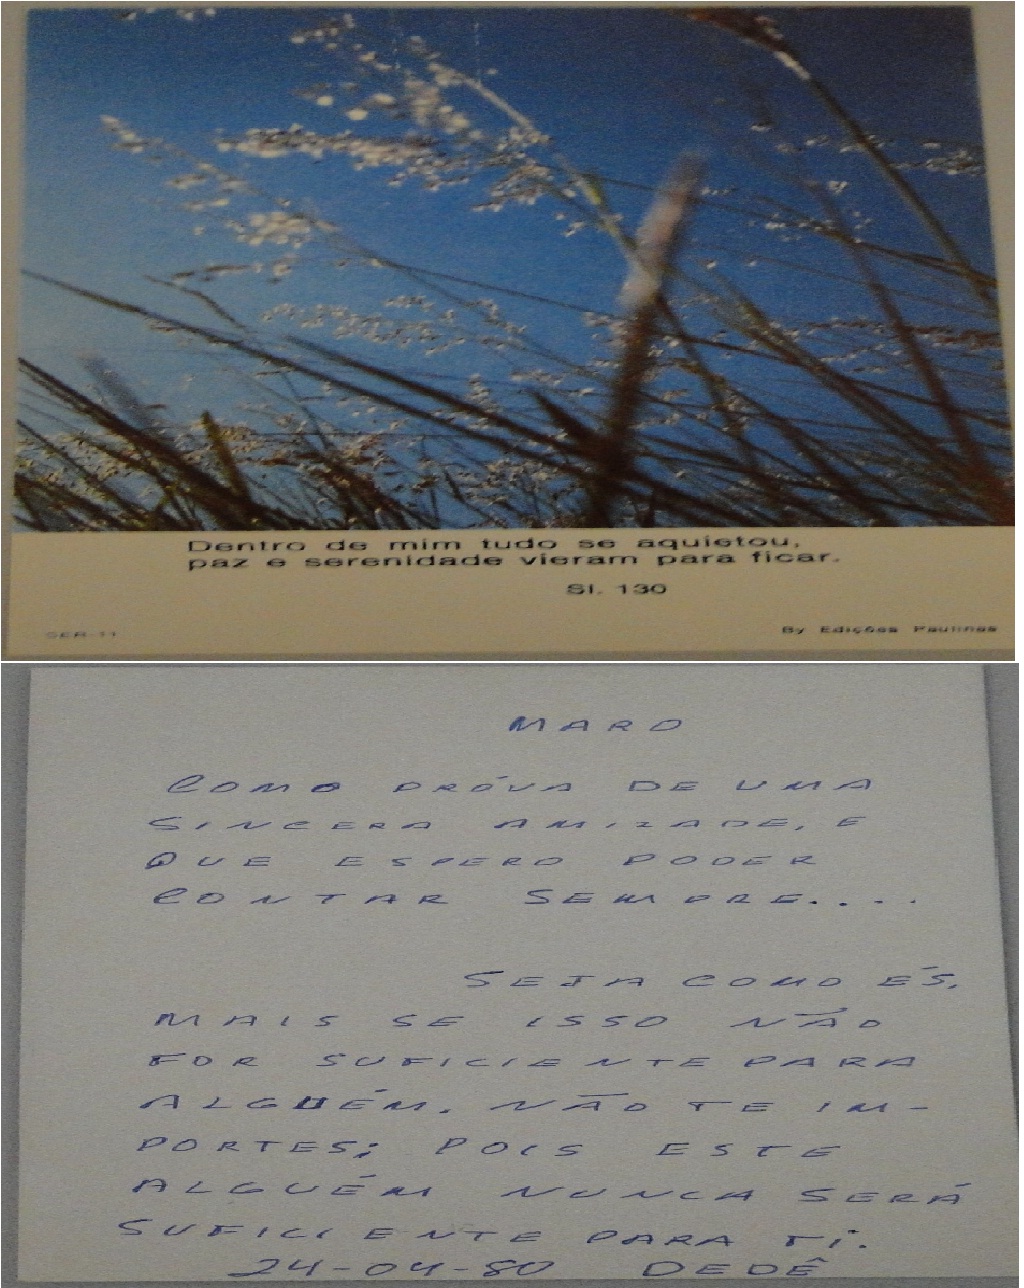 Dentro de mim tudo se aquietou,
paz e serenidade vieram para ficar.
Sl. 130
SER-11
By Edições Paulinas
MARO
COMO PRÓVA DE UMA
SINCERA AMIZADE, E
QUE ESPERO PODER
CONTAR SEMPRE....
SEJA COMO ÉS,
MAIS SE ISSO NÃO
FOR SUFICIENTE PARA
ALGUÉM, NÃO TE IM-
PORTES; POIS ESTE
ALGUÉM NUNCA SERÁ
SUFICIENTE PARA TI.
24-04-80 DEDÊ